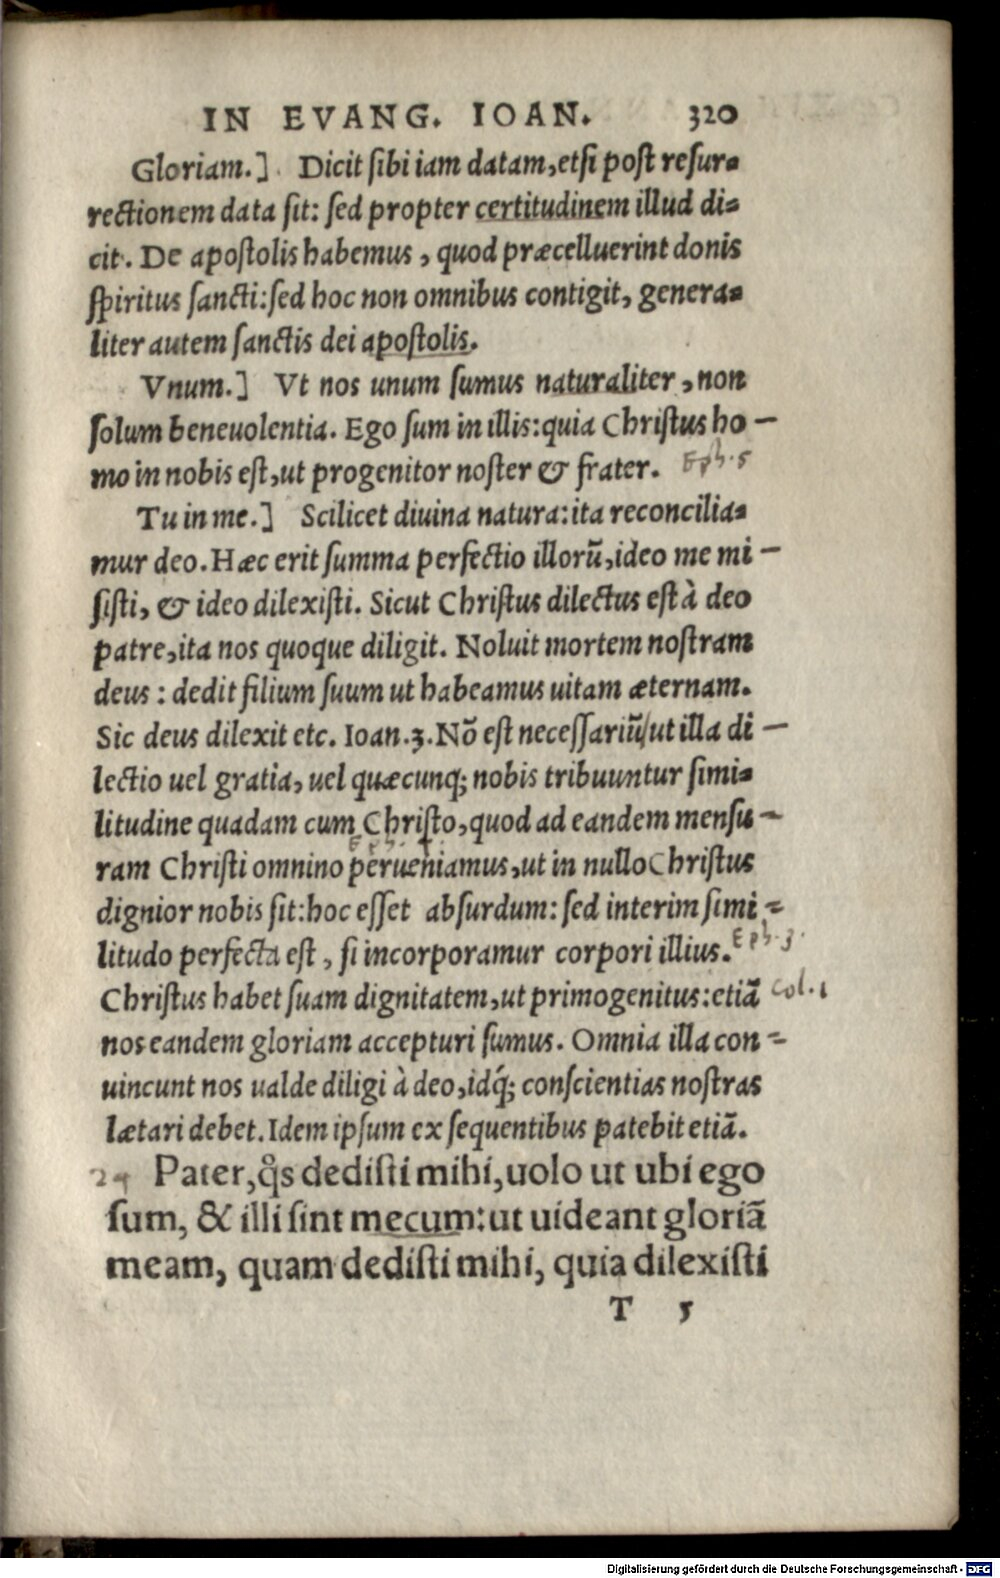 IN EVANG. IOAN. 320
Gloriam.] Dicit sibi iam datam, etsi post resur=
rectionem data sit: sed propter certitudinem illud di=
cit. De apostolis habemus, quod præcelluerint donis
spiritus sancti: sed hoc non omnibus contigit, genera=
liter autem sanctis dei apostolis.
Vnum.] Vt nos unum sumus naturaliter, non
solum beneuolentia. Ego sum in illis: quia Christus ho-
mo in nobis est, ut progenitor noster & frater. Eph. 5
Tu in me.] Scilicet diuina natura: ita reconcilia=
mur deo. Hæc erit summa perfectio illorũ, ideo me mi-
sisti, & ideo dilexisti. Sicut Christus dilectus est à deo
patre, ita nos quoque diligit. Noluit mortem nostram
deus: dedit filium suum ut habeamus uitam æternam.
Sic deus dilexit etc. Ioan. 3. Nõ est necessariũ/ ut illa di-
lectio uel gratia, uel quæcunq; nobis tribuuntur simi=
litudine quadam cum Christo, quod ad eandem mensu-
ram Christi omnino perueniamus, ut in nullo Christus
dignior nobis sit: hoc esset absurdum: sed interim simi=
litudo perfecta est, si incorporamur corpori illius. Eph. 3.
Christus habet suam dignitatem, ut primogenitus: etiã Col. 1
nos eandem gloriam accepturi sumus. Omnia illa con=
uincunt nos ualde diligi à deo, idq́; conscientias nostras
lætari debet. Idem ipsum ex sequentibus patebit etiã.
24 Pater, q̊s dedisti mihi, uolo ut ubi ego
sum, & illi sint mecum: ut uideant gloriã
meam, quam dedisti mihi, quia dilexisti
T 5
Digitalisierung gefördert durch die Deutsche Forschungsgemeinschaft - DFG